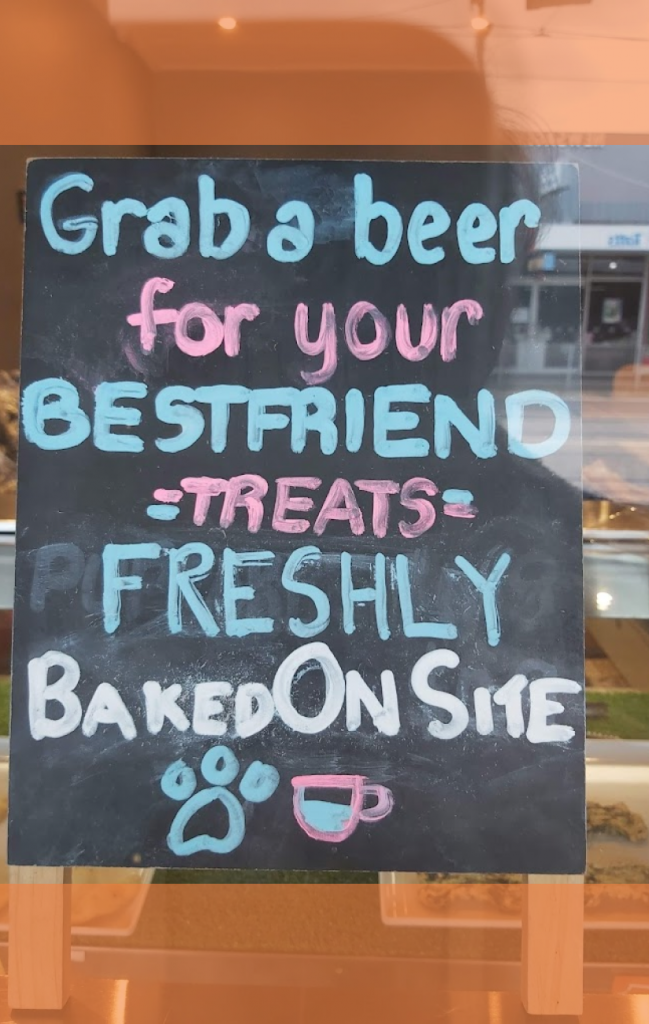 Grab a beer
for your
BESTFRIEND
=TREATS=
FRESHLY
BAKED ON SITE